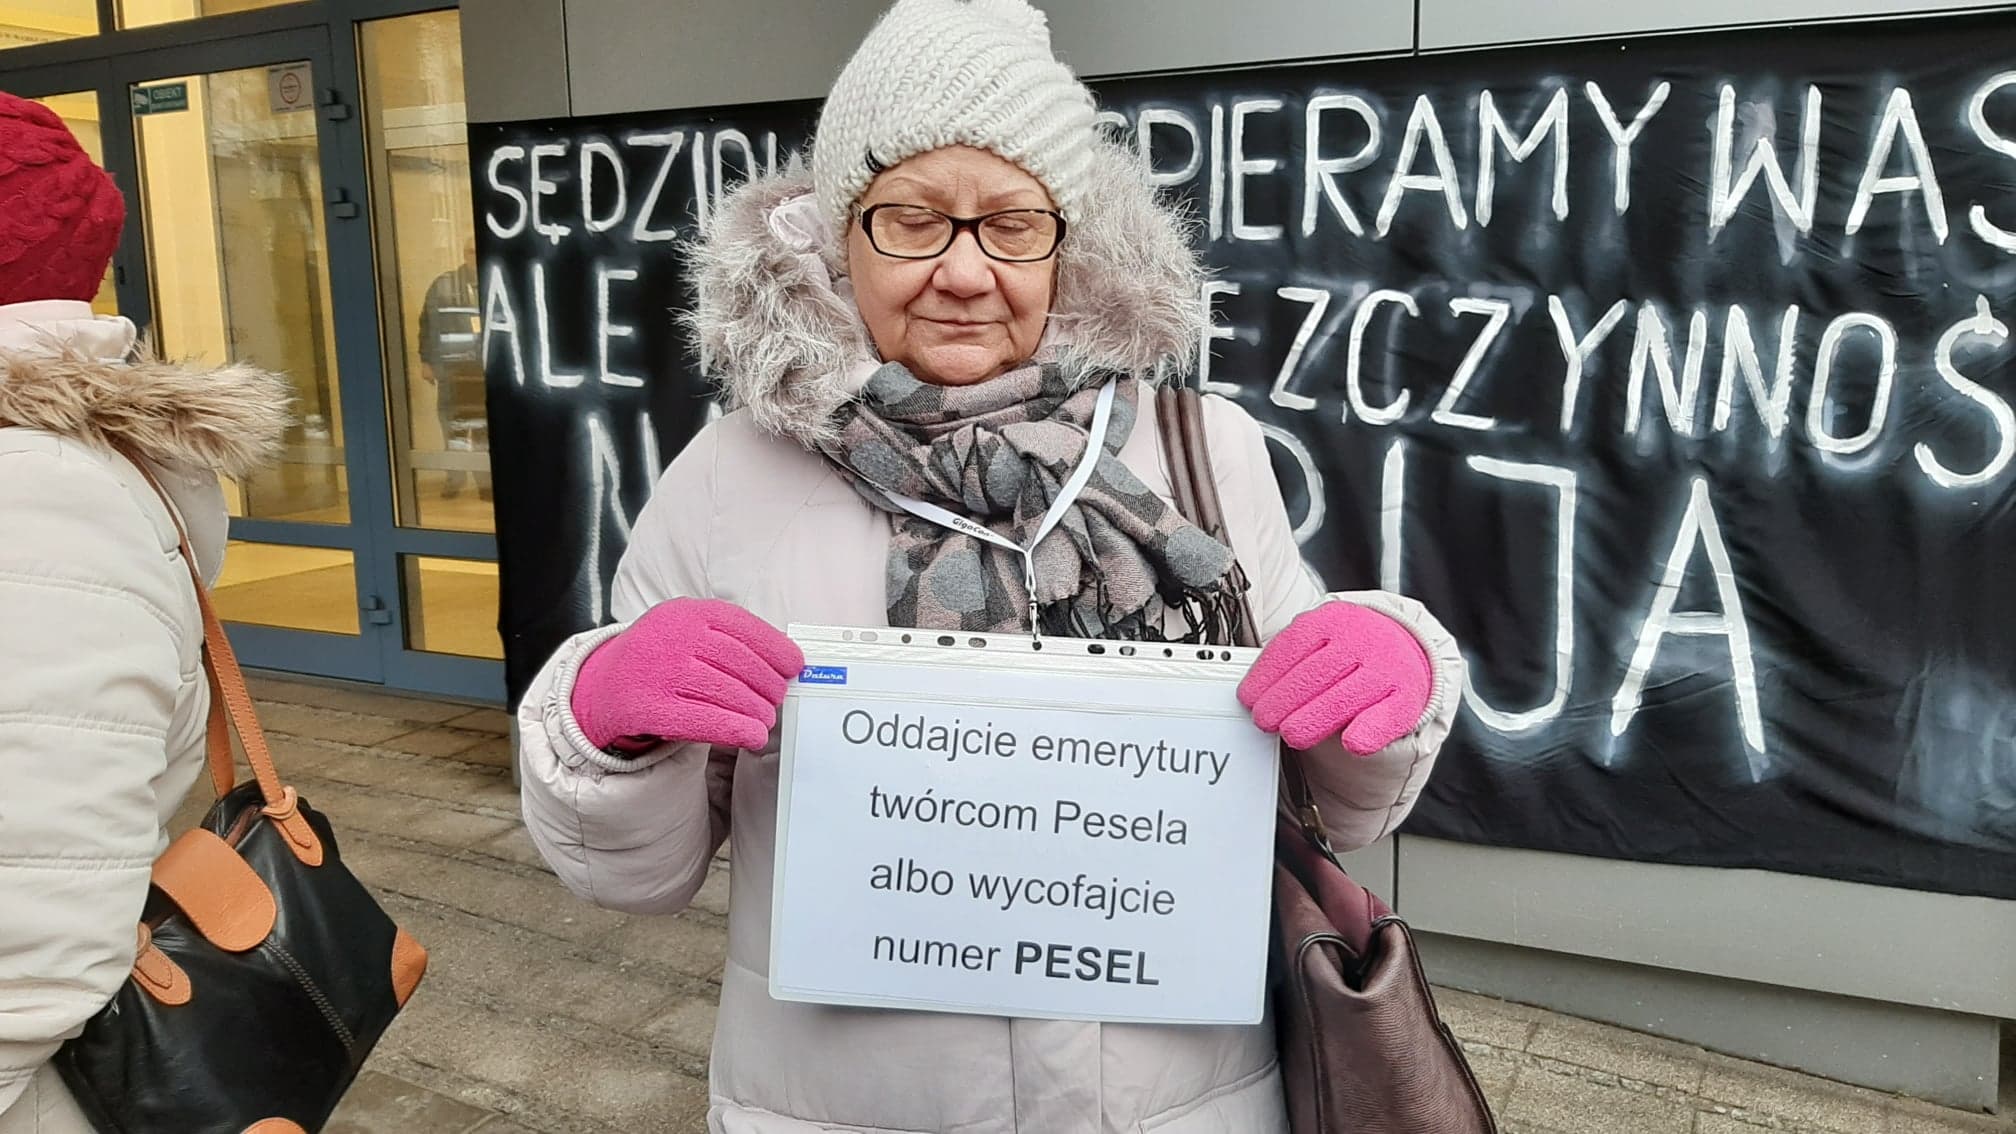 OBIEKT
SĘDZIOW PIERAMY WAS
ALE BEZCZYNNOŚ
IJA
GigaCon
Datura
Oddajcie emerytury
twórcom Pesela
albo wycofajcie
numer PESEL